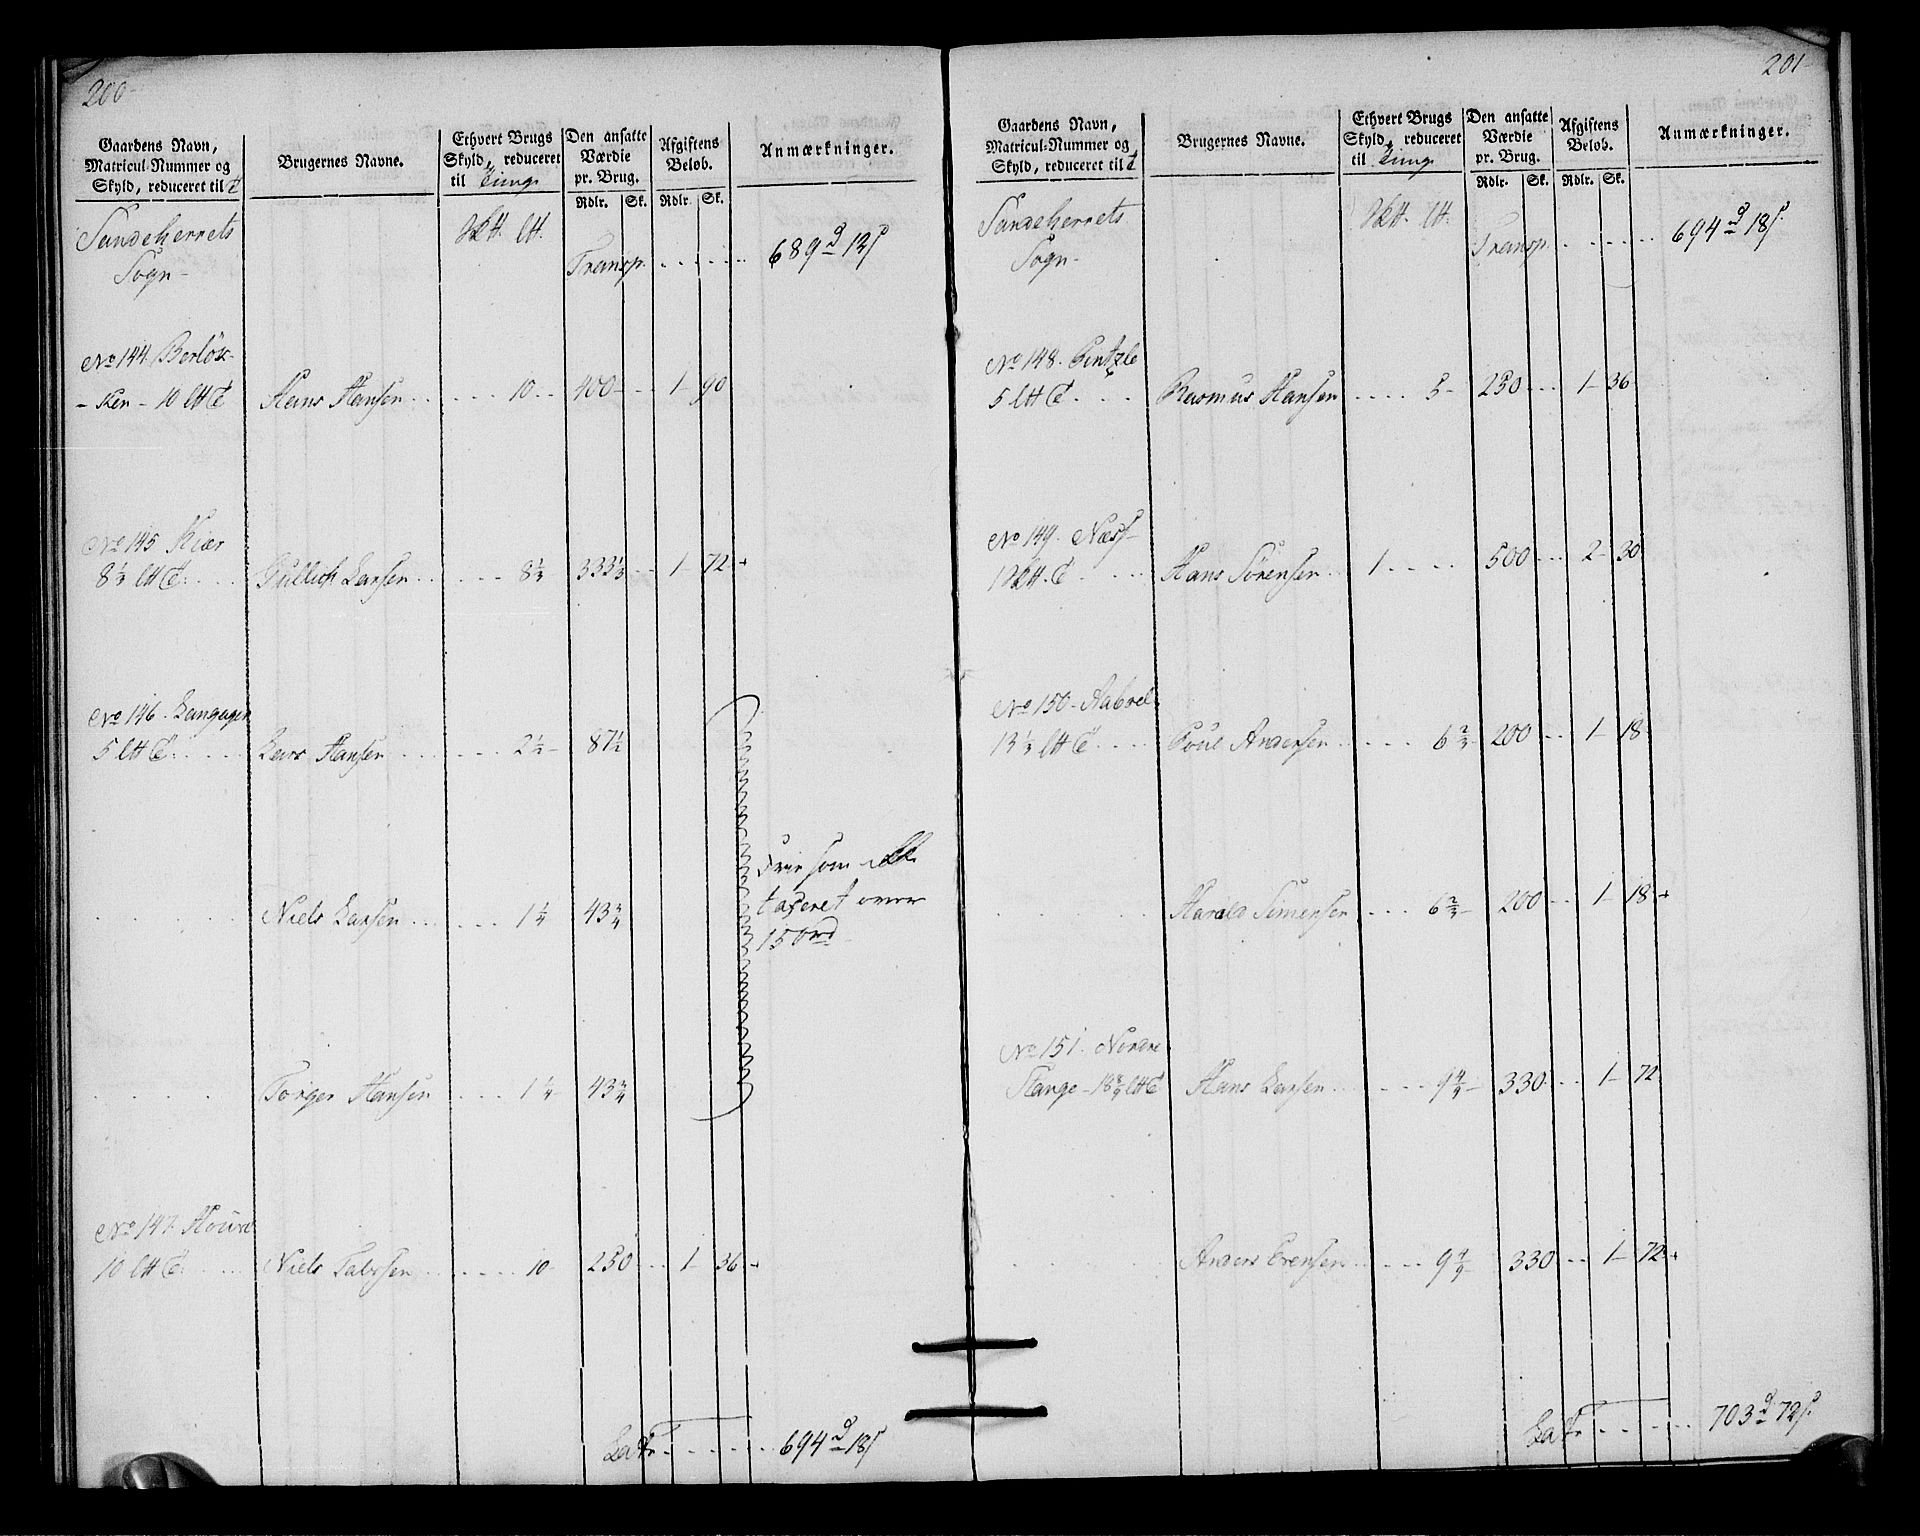 200
Gaardens Navn, Matricul-Nummer og Skyld, reduceret til
Brugernes Navne.
Ethvert Brugs Skyld, reduceret til Tunge
Den ansatte Værdie pr. Brug.
Rdlr. Sk.
Afgiftens Beløb.
Rdlr. Sk.
Anmærkninger.
Sandeherrets Sogn
Transp. 689 12
No 144. Berlöx-
-ken - 10 Hans Hansen 10 400 1 90
No 145 Kiær
8 1/3 Gullich Larsen 8 1/3 333 1/3 1 72
No 146. Langager
5 Lars Hansen 2 1/2 87 1/2
Frie som ikke
taxeret over
150 rd
Niels Larsen 1 1/4 43 3/4
Torger Hansen 1 1/4 43 3/4
No 147.
10 Niels 10 250 1 36
Latr 694 18
201
Gaardens Navn, Matricul-Nummer og Skyld, reduceret til
Brugernes Navne.
Ethvert Brugs Skyld, reduceret til Tunge
Den ansatte Værdie pr. Brug.
Rdlr. Sk.
Afgiftens Beløb.
Rdlr. Sk.
Anmærkninger.
Sandeherrets Sogn
Transp. 694 18
No 148.
5 Rasmus Hansen 5 250 1 36
No 149. Næss
1 Hans Sörensen 1 500 2 30
No 150.
13 1/3 Poul Andersen 6 2/3 200 1 18
Harald Simensen 6 2/3 200 1 18
No 151. Nordre
Stange - 18 8/9 Hans Larsen 9 4/9 330 1 72
Anders Evensen 9 4/9 330 1 72
Latr 703 72